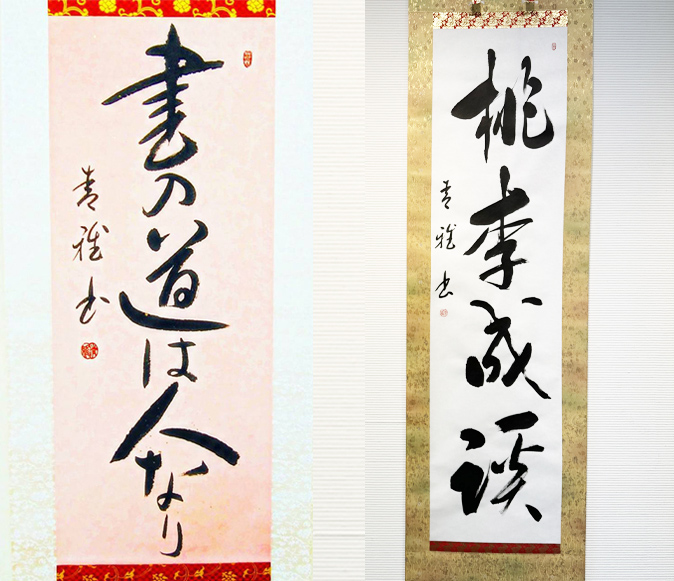 書の道は人なり
青雅書
桃李成蹊
青雅書